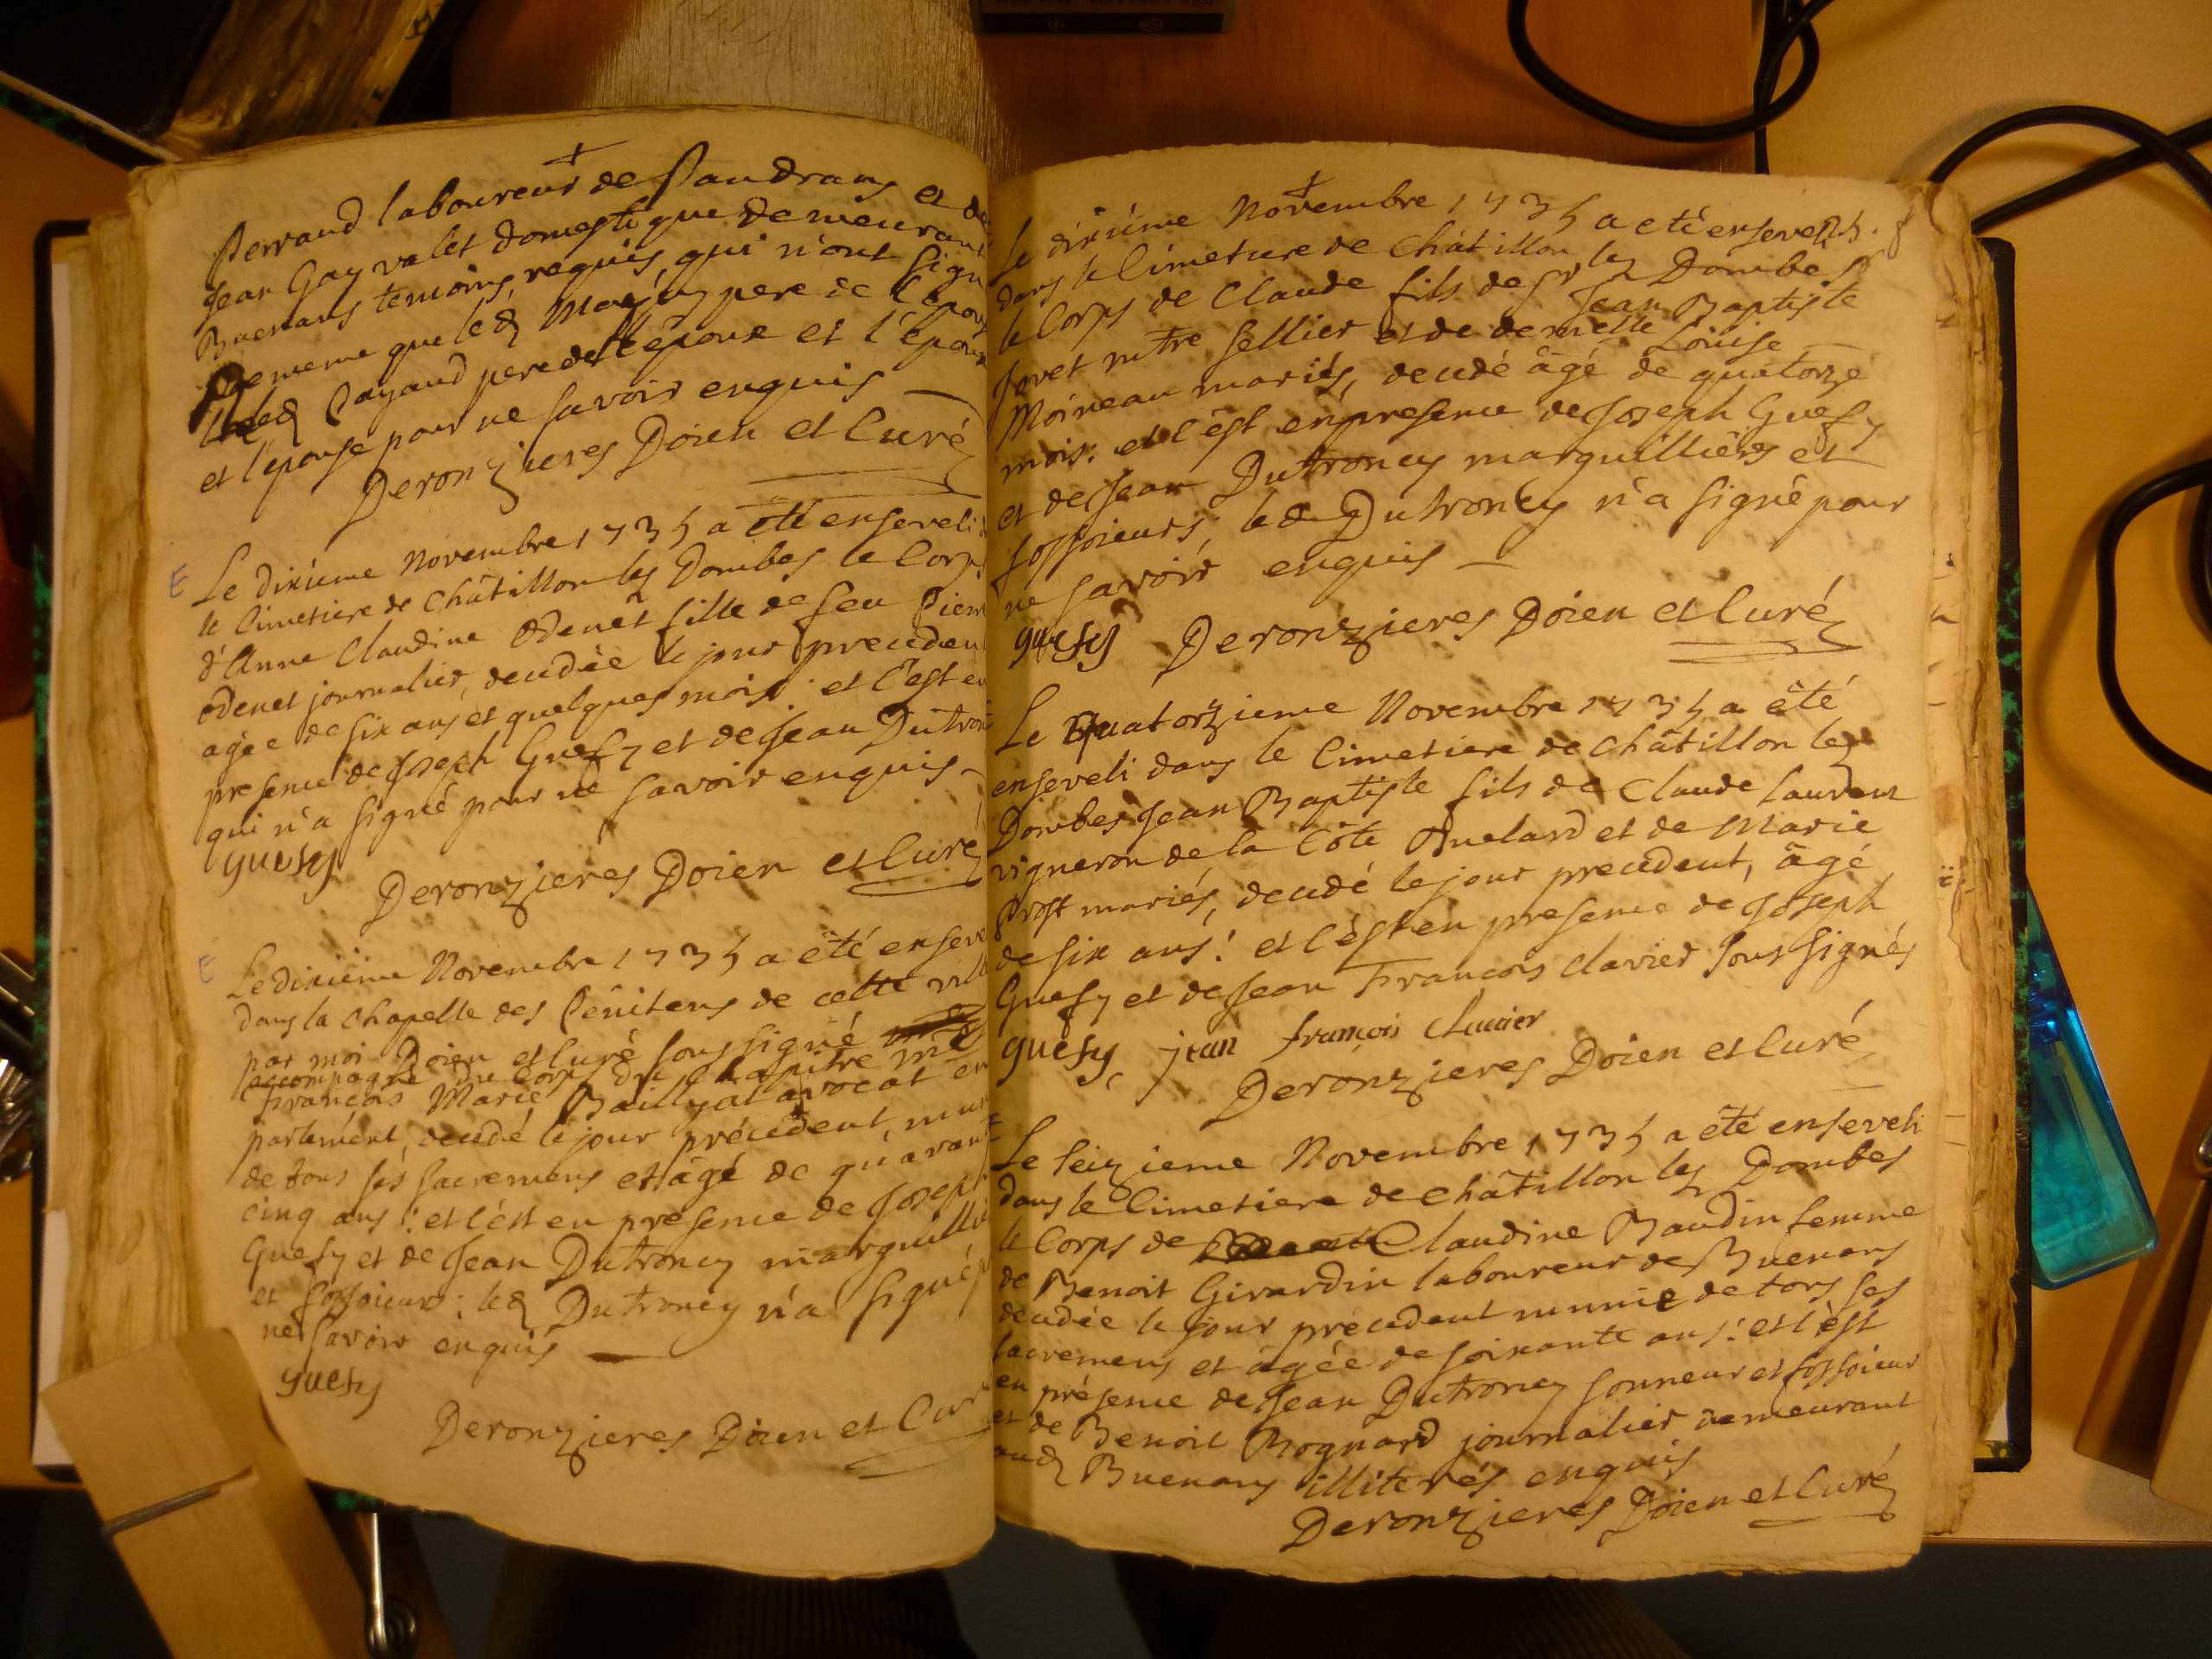 Perraud laboureur de Sandrans et de
Jean Gay valet domestique demeurant
Buenans temoins requis, qui n'ont sign
de meme que led
Led Payaud pere de l'époux et l'épou
et l'épouse pour ne savoir enquis
Deronzieres Doien et Curé
Le dixième Novembre 1735 a été enseveli d
le Cimetiere de Châtillon les Dombes le Corps
d'Anne Claudine Odenet fille de feu Pierre
Odenet journalier, decedée le jour precedent
agée de six ans et quelques mois: et c'est en
presence de Joseph Guesy et de Jean Dutron
qui n'a signé pour ne savoir enquis
guesy
Deronzieres Doien et Curé
E
Le dixième Novembre 1735 a été enseve
dans la chapelle des Pénitens de cette ville
par moi Doien et Curé soussigné
accompagné du Corps du Chapitre
François Marie Baillyat avocat en
parlement, decedé le jour précedent, mun
de tous ses sacremens et âgé de quarant
cinq ans: et c'est en présence de Joseph
Guesy et de Jean Dutroncy marguillie
et fossoieur: led Dutroncy n'a signé p
ne savoir enquis
guesy
Deronzieres Doien et Cur
E
Le dixième Novembre 1735 a eté enseveli
dans le Cimetiere de Châtillon les Dombes
le Corps de Claude fils de Sr Jean Baptiste
Joret mtre Sellier et de demelle Louise
Moineau mariés, decedé âgé de quatorze
mois: et c'est en presence de Joseph Guesy
et de Jean Dutroncy marguilliers et
fossoieurs; led Dutroncy n'a signé pour
ne savoir enquis
guesy Deronzieres Doien et Curé
Le Quatorzieme Novembre 1735 a été
enseveli dans le Cimetiere de Châtillon les
Dombes Jean Baptiste fils de Claude Laurent
vigneron de la Côte Buelard et de Marie
Prost mariés, decedé le jour precedent, âgé
de six ans: et c'est en presence de Joseph
Guesy et de Jean François Clavier soussignés
guesy, jean françois Clavier
Deronzieres Doien et Curé
Le seizieme Novembre 1735 a été enseveli
dans le Cimetiere de Châtillon les Dombes
le Corps de Claudine Baudin femme
de Benoit Girardin laboureur de Buenans
decedée le jour précedent munie de tous ses
sacremens et âgée de soixante ans: et c'est
en présence de Jean Dutroncy sonneur et fossoieur
et de Benoit Rognard journalier demeurant
aud Buenans illiterés enquis
Deronzieres Doien et Curé